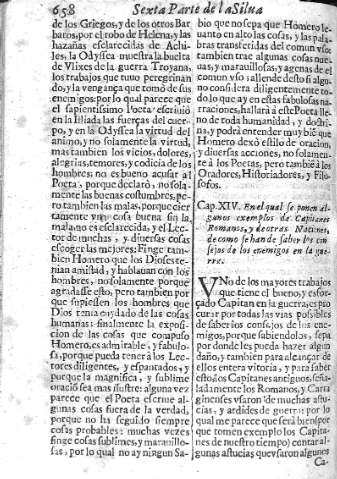 658 Sexta Parte de la Silua
de los Griegos, y de los otros Bar
baros, por el robo de Helena, y las
hazañas esclarecidas de Achi-
les, la Odyssea muestra la buelta
de Vlixes de la guerra Troyana,
los trabajos que tuuo peregrinan
do, y la vengança que tomò de sus
enemigos: por lo qual parece que
el sapientissimo Poeta escriuiò
en la Iliada las fuerças del cuer-
po, y en la Odyssea la virtud del
animo, y no solamente la virtud,
mas tambien los vicios, dolores,
alegrias, temores, y codicia de los
hombres; no es bueno acusar al
Poeta, porque declarò, no sola-
mente las buenas costumbres, pe-
ro tambien las malas, porque cier
tamente vna cosa buena sin la
mala no es esclarecida, y el Lec
tor de muchas, y diuersas cosas
escoge las mejores: Finge tam-
bien Homero que los Dioses te-
nian amistad, y hablauan con los
hombres, no solamente porque
agradasse esto, pero tambien por
que supiessen los hombres que
Dios tenia cuydado de las cosas
humanas: finalmente la exposi-
cion de las cosas que compuso
Homero, es admirable, y fabulo-
sa, porque pueda tener à los Lec-
tores diligentes, y espantados, y
porque la magnifica, y sublime
oraciõ sea mas ilustre: alguna vez
parece que el Poeta escriue al-
gunas cosas fuera de la verdad,
porque no ha seguido siempre
cosas probables: muchas vezes
finge cosas sublimes, y marauillo-
sas, por lo qual no ay ningun Sa-
bio que no sepa que Homero le-
uanto en alto las cosas, y las pala
bras transferidas del comun vso:
tambien trae algunas cosas nue-
uas, y marauillosas, y agenas de el
comun vso: allende desto si algu-
no considera diligentemente to-
do lo que ay en estas fabulosas na
rraciones, hallarà à este Poeta lle-
no de toda humanidad, y doctri-
na, y podrà entender muy biẽ que
Homero dexò estilo de oracion,
y diuersas acciones, no solamen-
te à los Poetas, pero tambiẽ à los
Oradores, Historiadores, y Fi-
losofos.
Cap. XIV. En el qual se ponen al
gunos exemplos de Capitanes
Romanos, y de otras Naciones,
de como se han de saber los cõ
sejos de los enemigos en la gue
rra.
VNo de los mayores trabajos
que tiene el bueno, y esfor-
çado Capitan en la guerra, es pro
curar por todas las vias possibles
de saber los consejos de los ene-
migos, porque sabiendolos, sepa
por donde les pueda hazer algun
daño, y tambien para alcançar de
ellos entera vitoria, y para saber
esto, los Capitanes antiguos, seña-
ladamente los Romanos, y Carta
gineses vsaron de muchas astu-
cias, y ardides de guerra: por lo
qual me parece que serà bien (por
que tomen exemplo los Capita-
nes de nuestro tiempo) contar al-
gunas astucias que vsaron algunos
Ca-